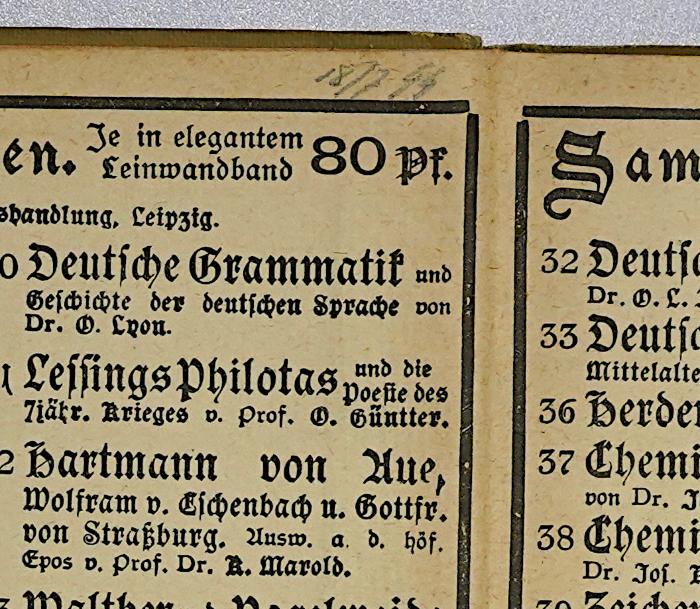 en. Je in elegantem
Leinwandband 80 Pf.
shandlung, Leipzig.
0 Deutsche Grammatik und
Geschichte der deutschen Sprache von
Dr. O. Lyon.
1 Lessings Philotas und die
Poesie des
7jähr. Krieges v. Prof. O. Güntter.
2 Hartmann von Aue,
Wolfram v. Eschenbach u. Gottfr.
von Straßburg. Ausw. a. d. höf.
Epos v. Prof. Dr. K. Marold.
Walther
Sam
32 Deutsc
Dr. O. L.
33 Deutsc
Mittelalte
36 Herder
37 Chemi
von Dr. J
38 Chemi
Dr. Jos.